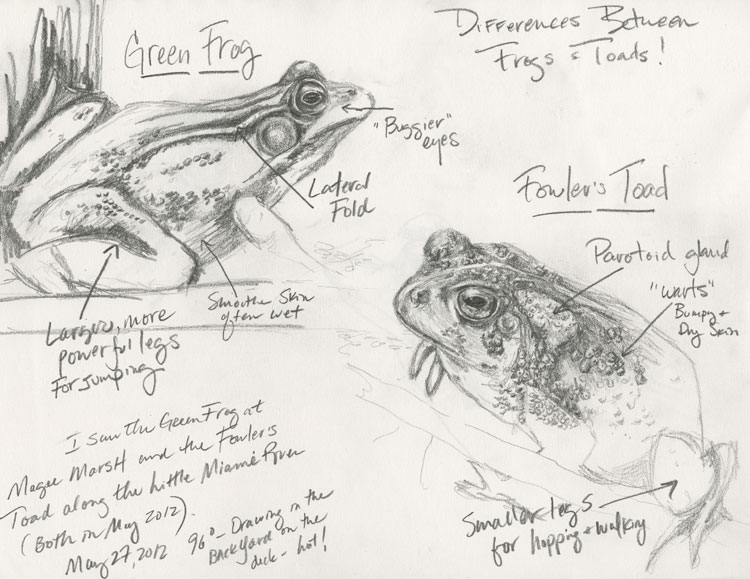 Differences Between
Frogs & Toads!
Green Frog
"Buggier"
eyes
Lateral
Fold
Smooth Skin
often wet
Larger, more
powerful legs
For jumping
Fowler's Toad
Parotoid gland
"Warts"
Bumpy &
Dry Skin
Smaller legs
for hopping & walking
I saw the Green Frog at
Magee Marsh and the Fowler's
Toad along the Little Miami River
(Both in May 2012).
May 27, 2012
96° - Drawing in the
Backyard on the
deck - hot!